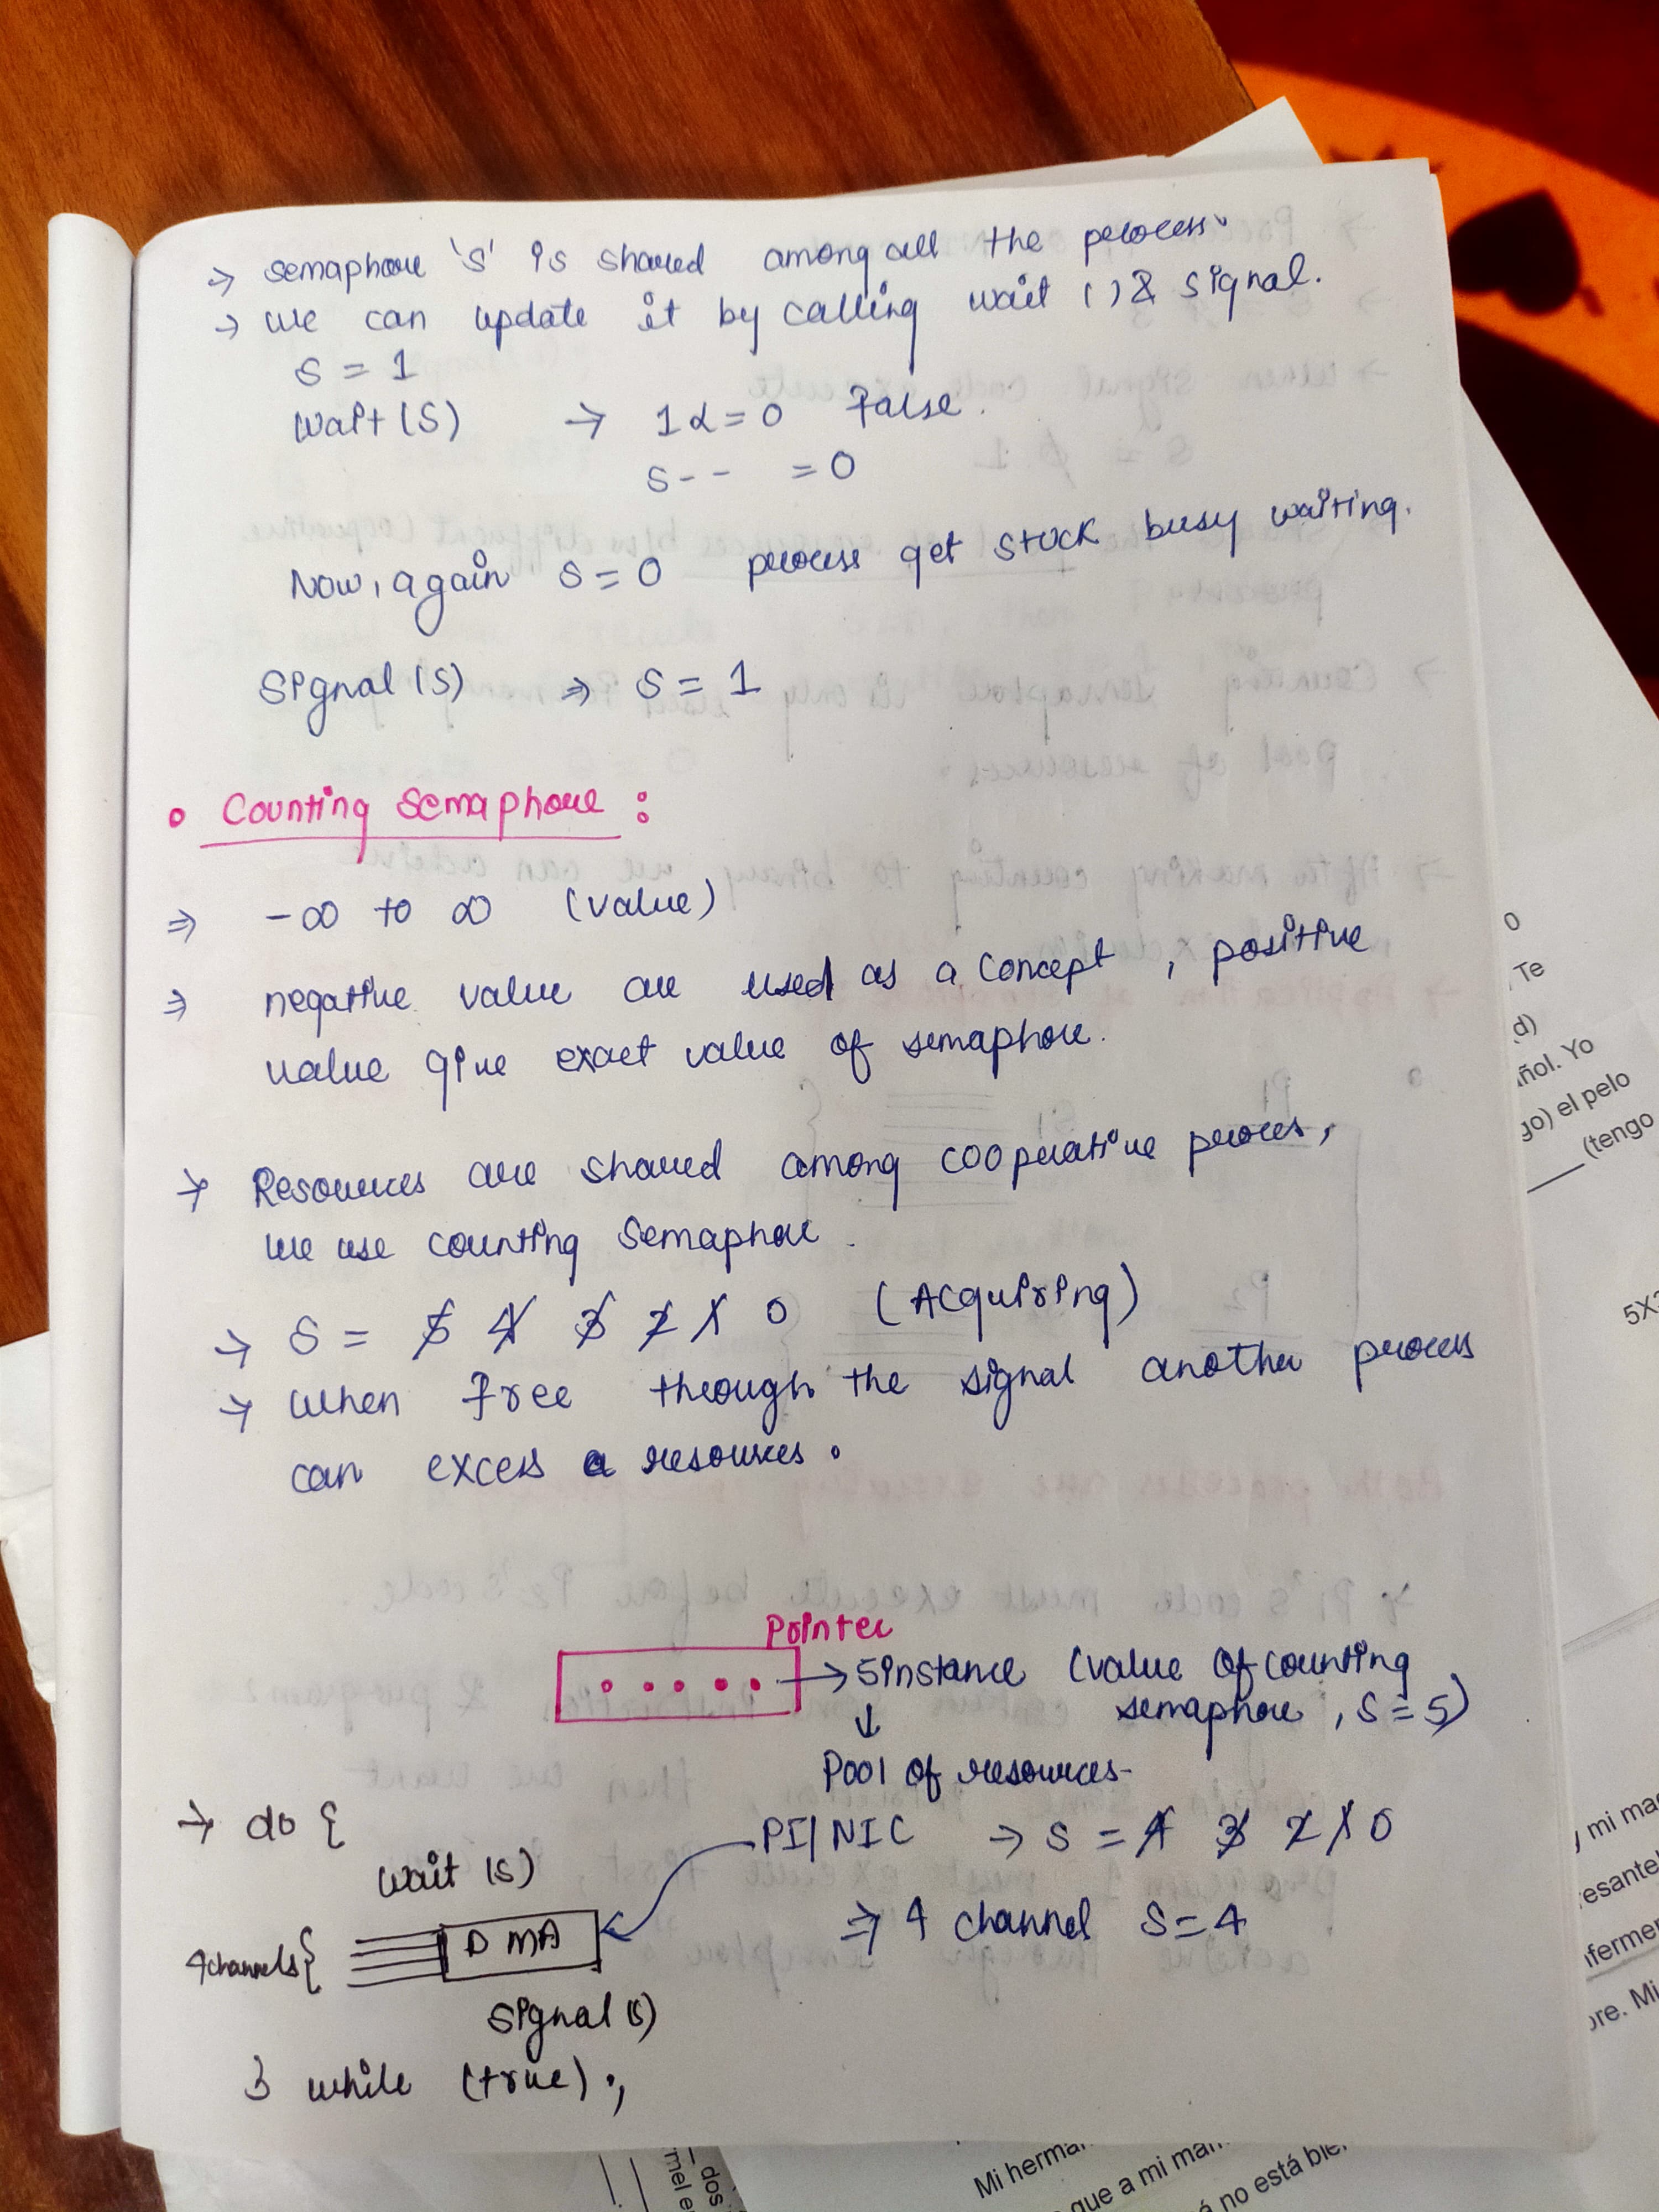 → semaphore 's' is shared among all the process
→ we can update it by calling wait ( ) & signal.
S = 1
wait (S) → 1 <= 0 False.
S-- = 0
Now, again S = 0 process get stuck busy waiting.
Signal (S) ⇒ S = 1
• Counting semaphore :
⇒ -∞ to ∞ (value)
⇒ negative value are used as a concept, positive
value give exact value of semaphore.
→ Resources are shared among cooperative process,
we use counting semaphore.
→ S = 5 4 3 2 1 0 (Acquiring)
→ when free through the signal another process
can excess a resources.
Pointer
→ 5 instance (value of counting
semaphore, S = 5)
↓
Pool of resources-
→ do {
wait (S)
PI/NIC → S = 4 3 2 1 0
4 channels { DMA
⇒ 4 channel S = 4
signal (S)
} while (true) ;
0
Te
d)
ñol. Yo
go) el pelo
(tengo
5X
mi ma
esante
nfermer
ore. Mi
dos
mel e
Mi herma
que a mi mam
á no está bie